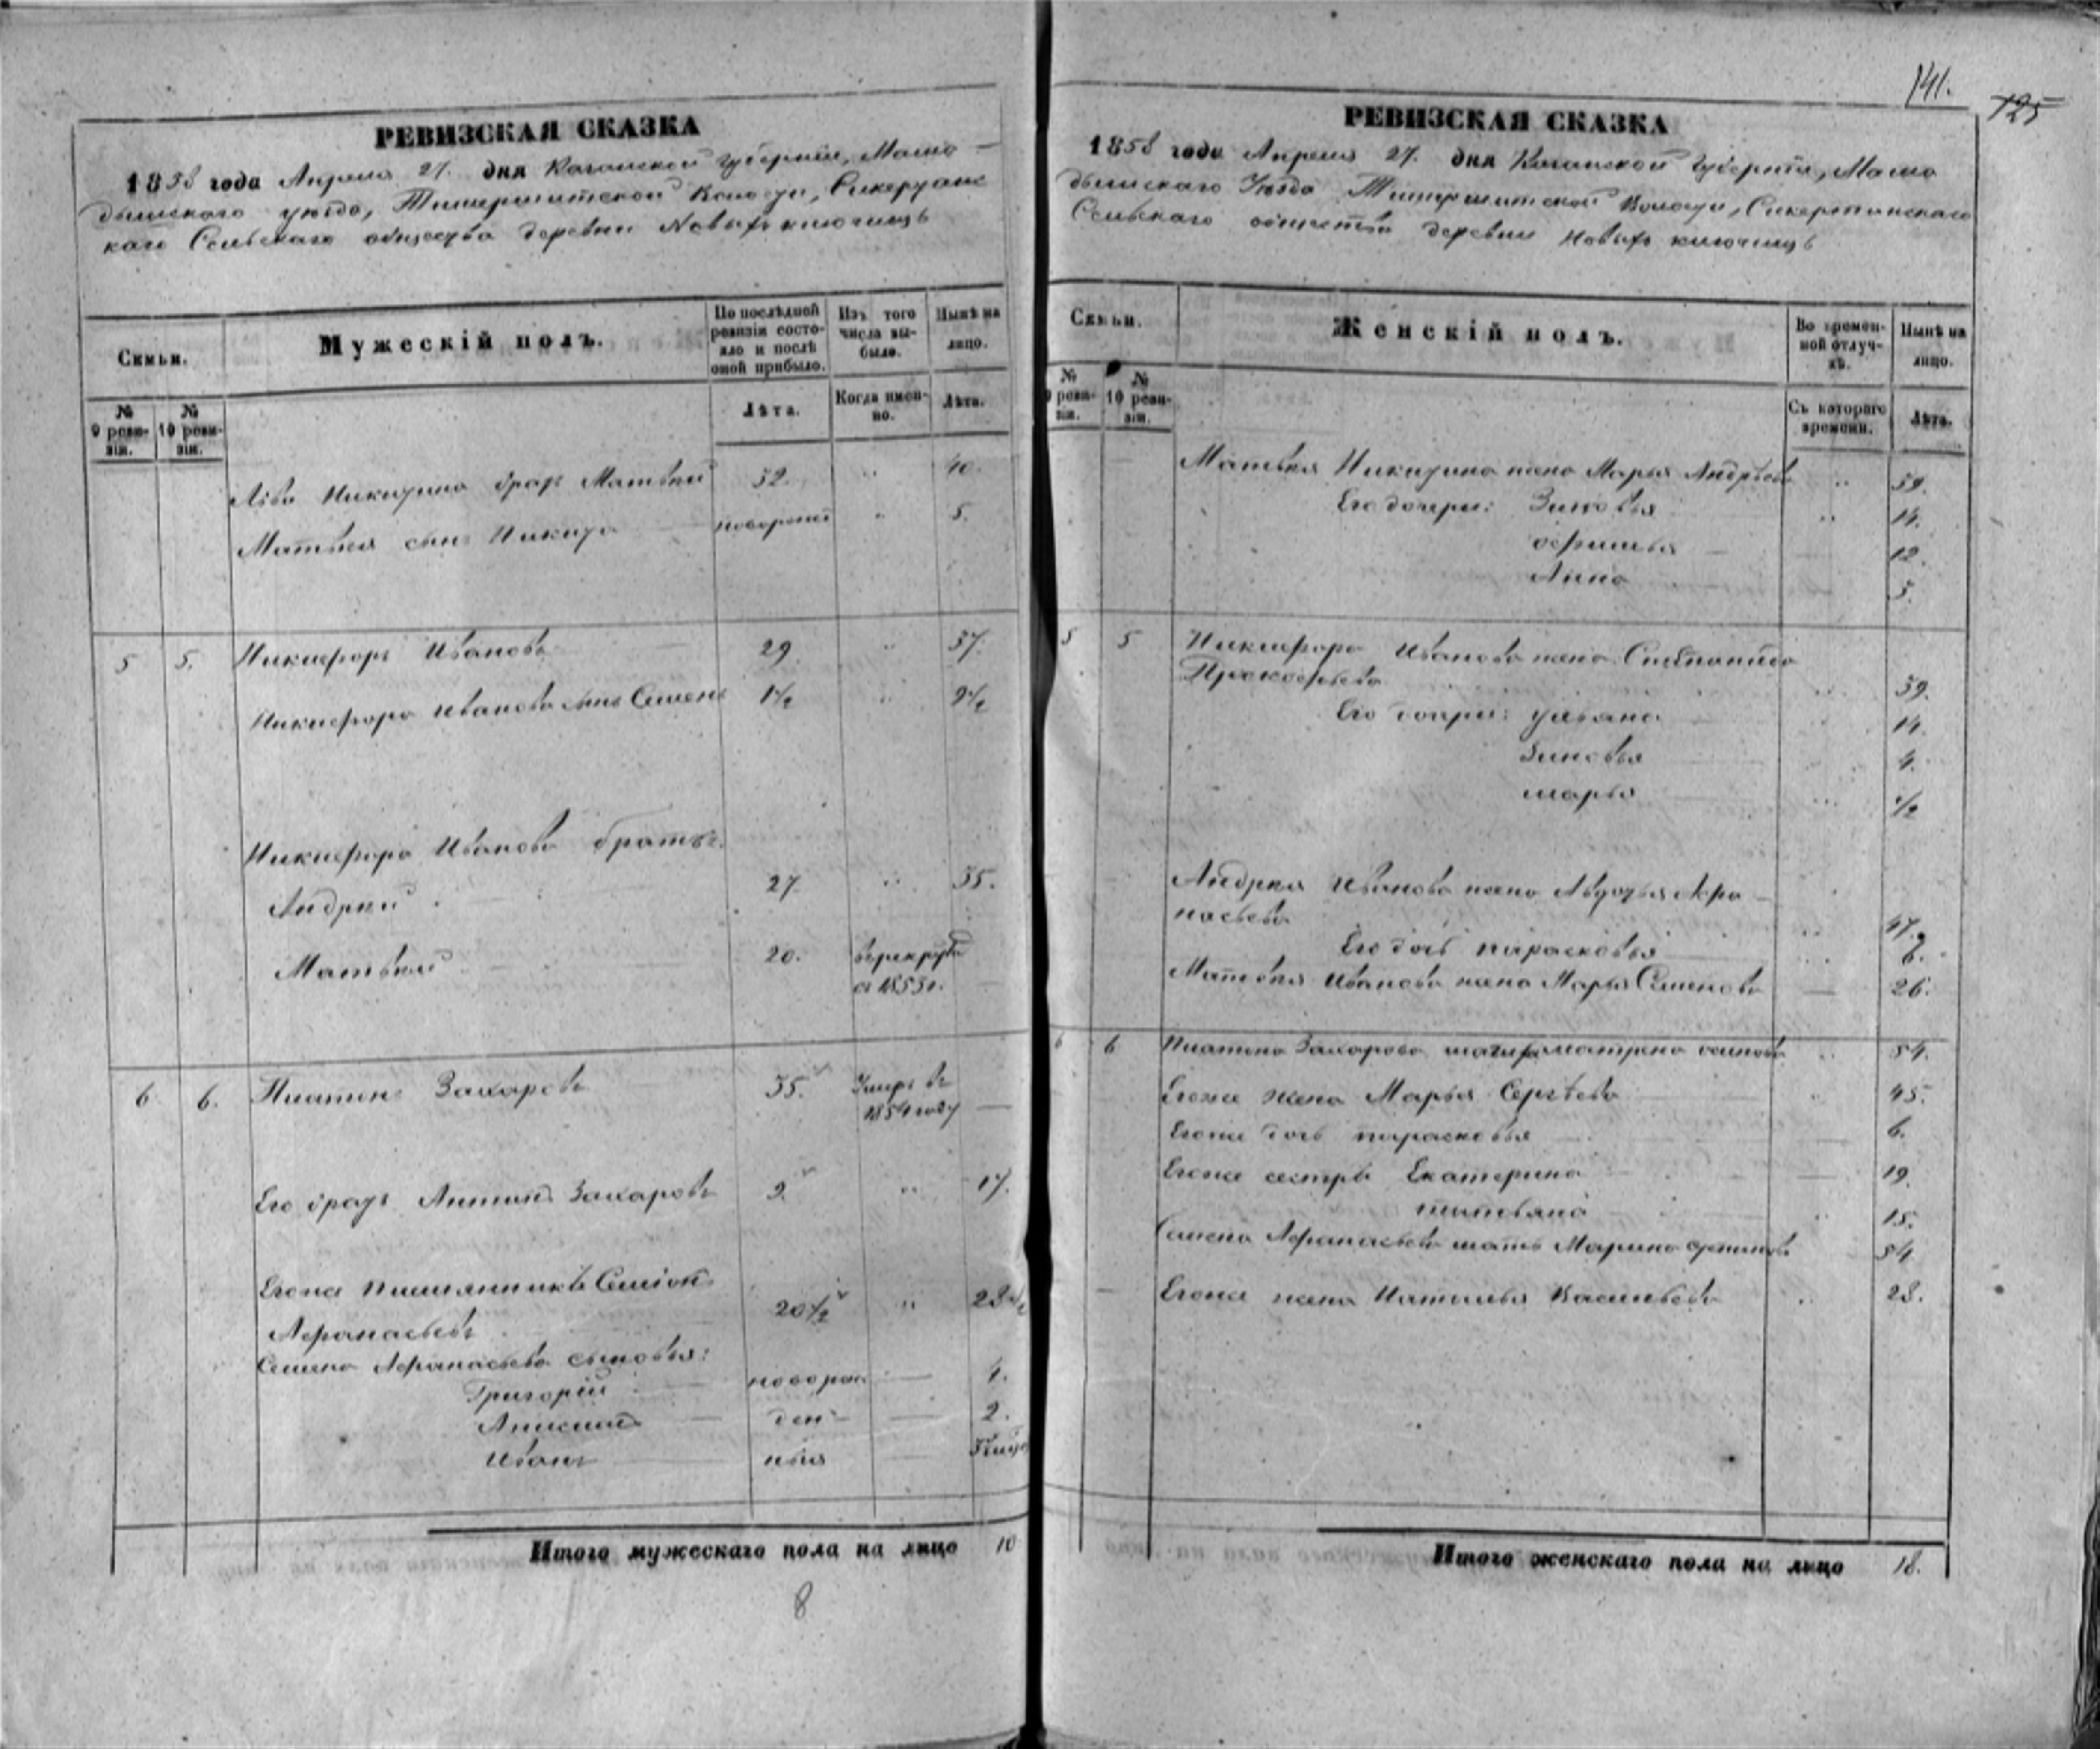 141.
125
РЕВИЗСКАЯ СКАЗКА
1858 года Апреля 27. дня Казанской губерніи, Мама-
дышскаго уѣзда, волости,
каго Сельскаго общества деревни Новыхъ ключищъ
Семьи.
№ 9 ревизіи.
№ 10 ревизіи.
Мужескій полъ.
По послѣдней ревизіи состояло и послѣ оной прибыло.
Лѣта.
Изъ того числа выбыло.
Когда именно.
Нынѣ на лицо.
Лѣта.
Льва Никитина братъ Матвей 32. " 40.
Матвея сынъ Никита " 5.
5 5. Никифоръ Ивановъ 29 " 37.
Никифора Иванова сынъ Семенъ 1½ " 9½
Никифора Иванова братья
Андрей 27 " 35.
Матвей 20. въ рекруты
въ 1855г.
6 6. Платонъ Захаровъ 35. Умеръ въ
1854 году
Его братъ Антонъ Захаровъ 9. " 17.
Егоже племянникъ Семіонъ
Афанасьевъ 20½ " 28½
Семена Афанасьева сыновья:
Григорій новорож 4.
ден- 2.
Иванъ ныя
Итого мужескаго пола на лицо 10
8
РЕВИЗСКАЯ СКАЗКА
1858 года Апреля 27. дня Казанской Губерніи, Мама
дышскаго Уѣзда волости,
Сельскаго общества деревни Новыхъ ключищъ
Семьи.
№ 9 ревизіи.
№ 10 ревизіи.
Женскій полъ.
Во временной отлучкѣ.
Съ котораго времени.
Нынѣ на лицо.
Лѣта.
Матвея Никитина жена Марья Андрѣева " 39.
Его дочери: Зиновья " 14.
12.
Анна 5.
5 5 Никифора Иванова жена Степанида
Прокофьева 39.
Его дочери: Ульяна 14.
Зиновья 4.
марья ½
Андрея Иванова жена Авдотья Афа-
насьева
Его дочь парасковья
Матвея Иванова жена Марья Семенова 26.
6 6 Платона Захарова матрена 54.
Егоже жена Марья Сергѣева " 45.
Егоже дочь парасковья 6.
Егоже сестры Екатерина 19.
татьяна 15.
Семена Афанасьева мать Марина 54.
Егоже жена Наталья Васильева 28.
Итого женскаго пола на лицо 18.